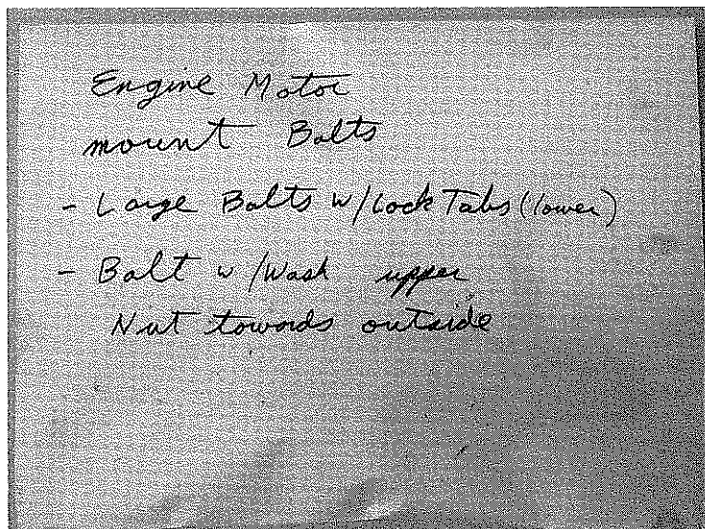 Engine Motor
mount Bolts
- Large Bolts w/Lock Tabs (lower)
- Bolt w/Wash upper
Nut towards outside